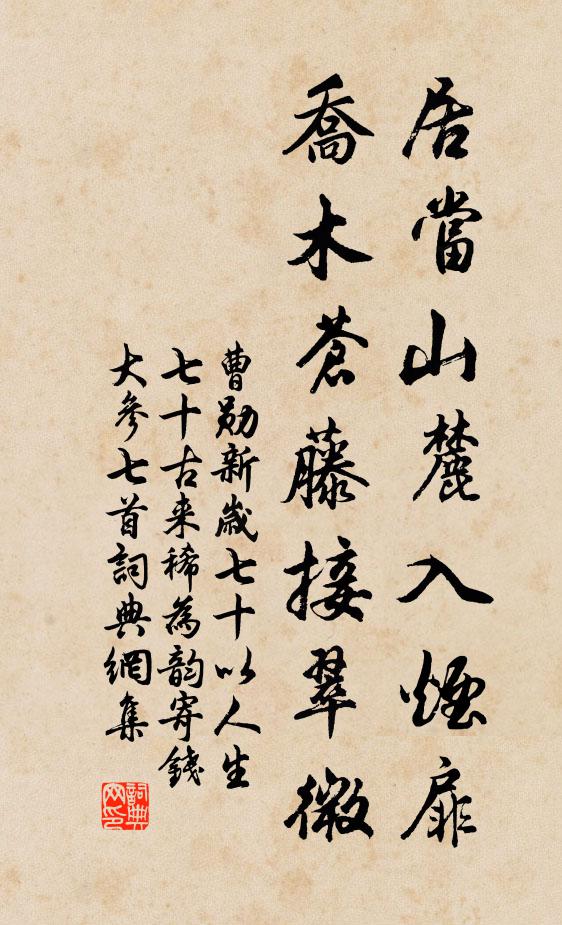 居當山麓入煙扉
喬木蒼藤接翠微
曹勛新歲七十以人生
七十古来稀為韵寄錢
大參七首詞典網集
詞典網印